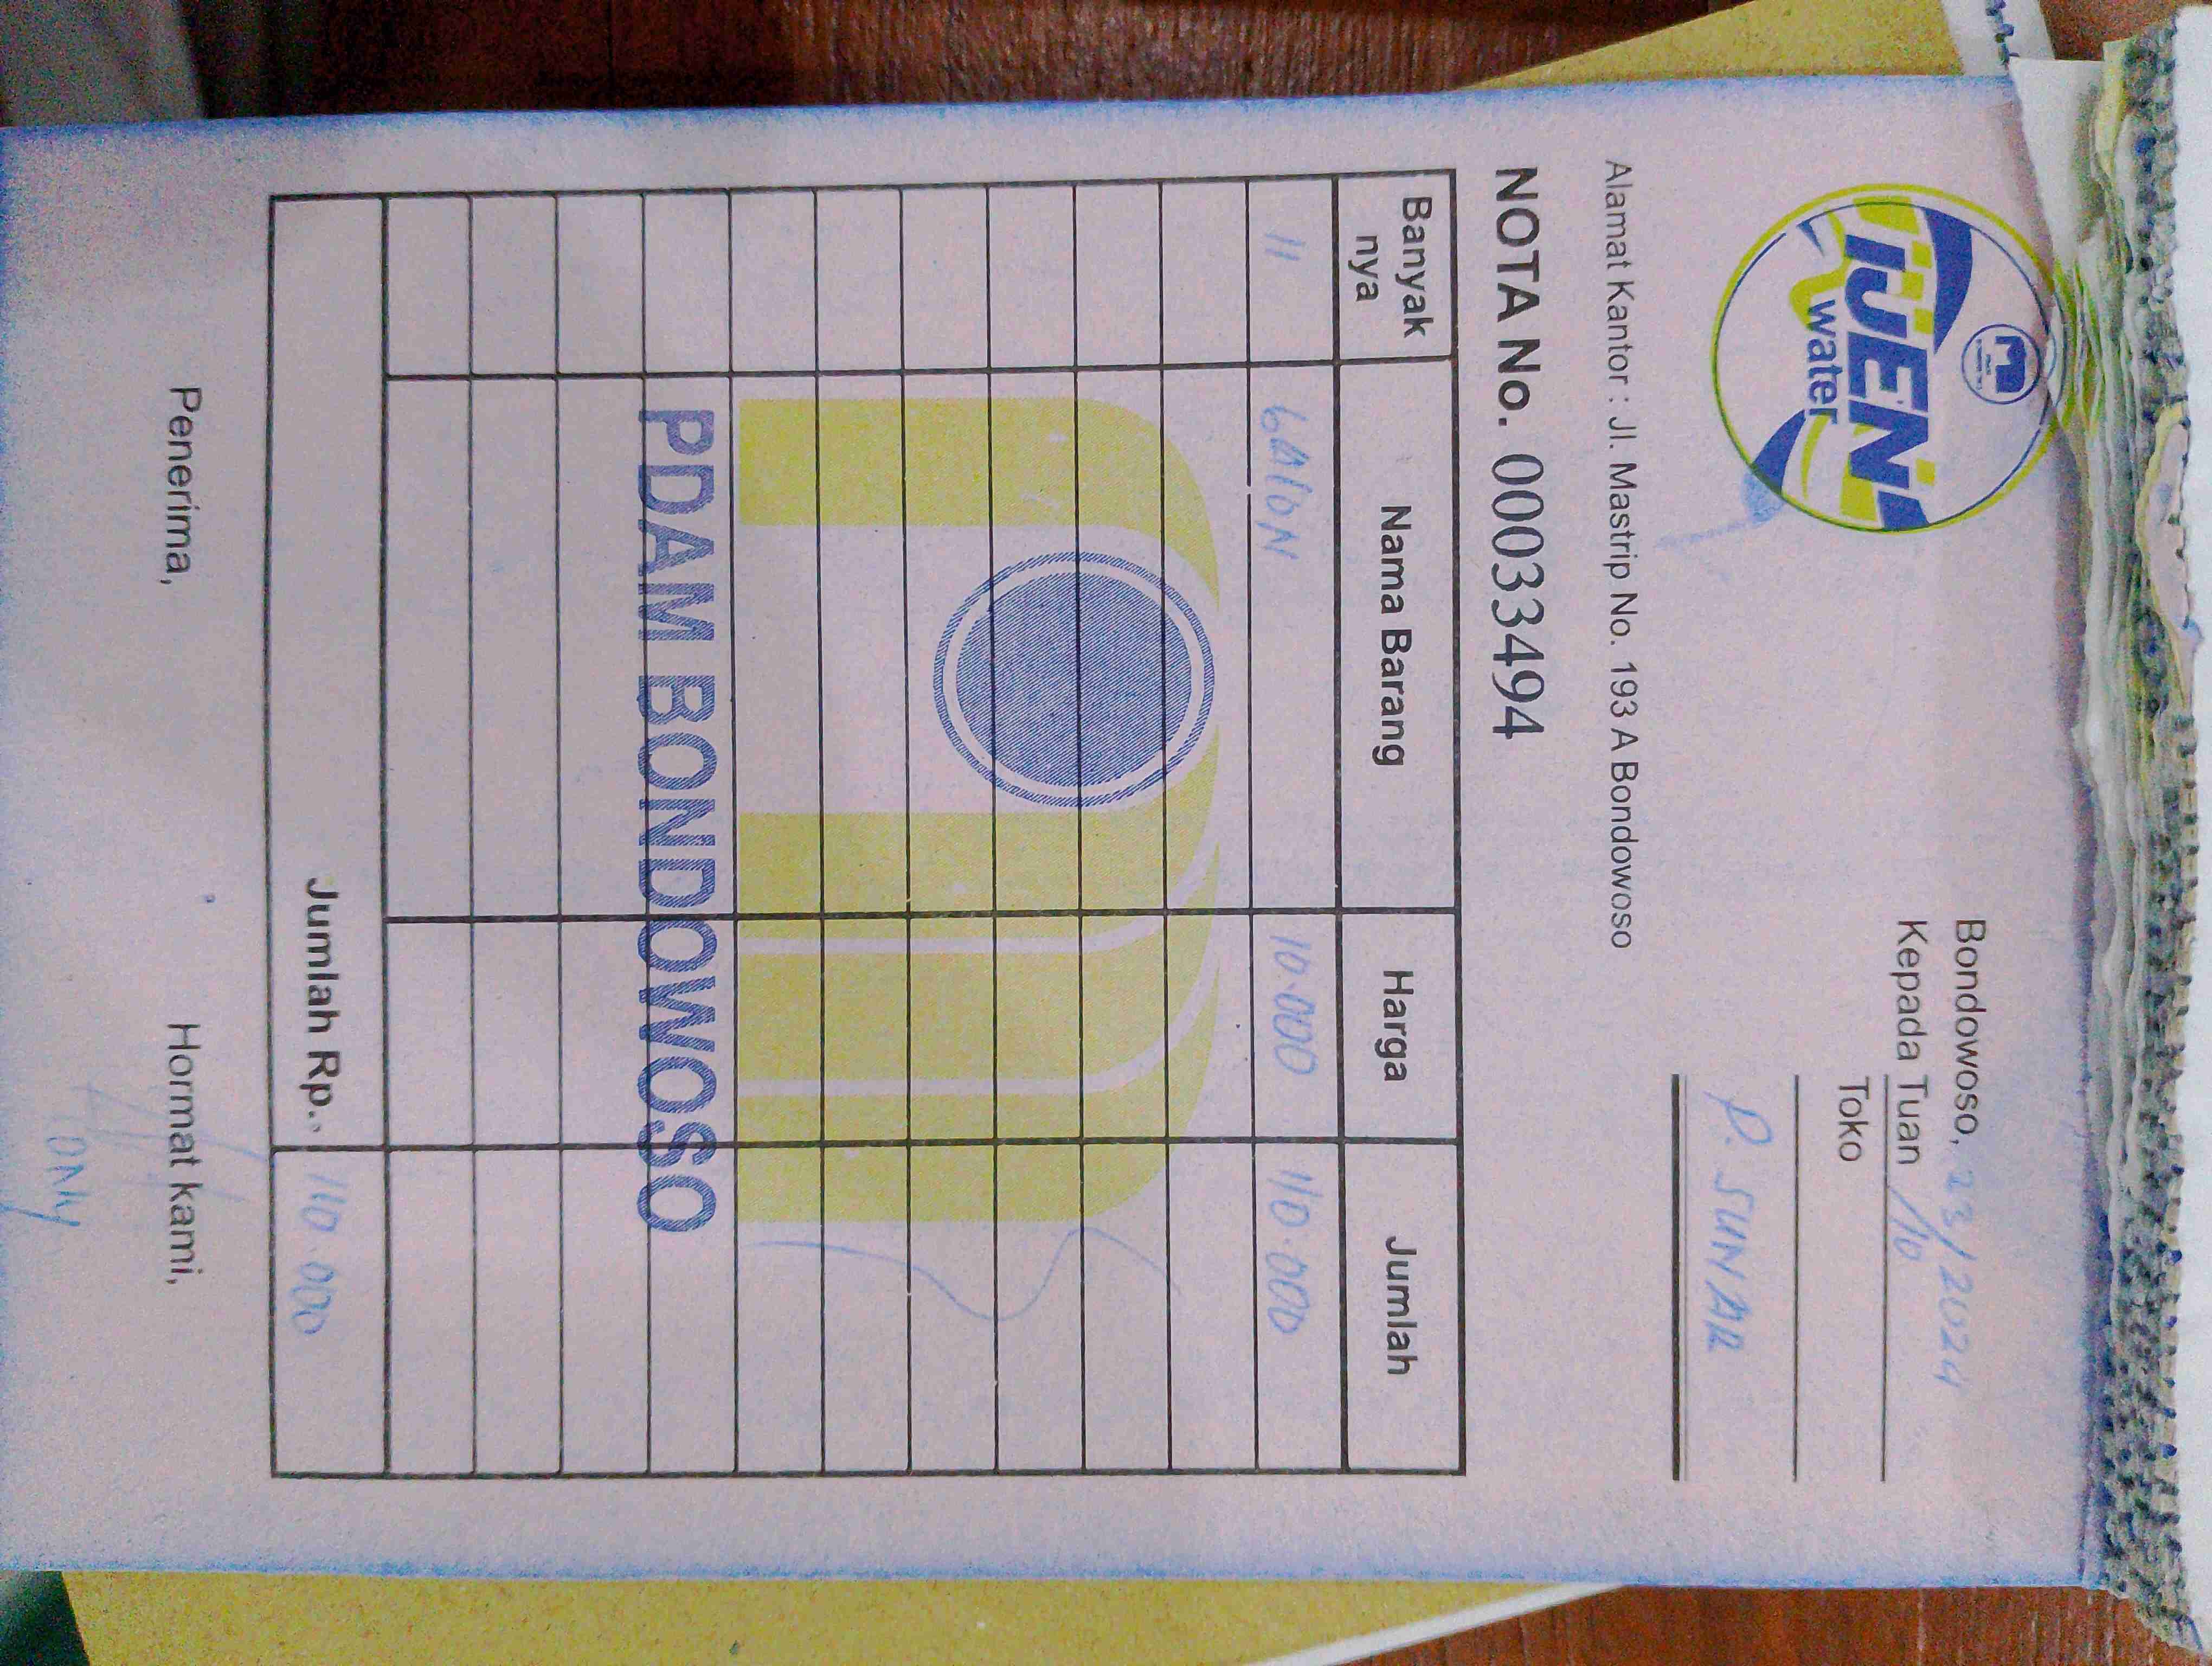 IJEN
water
Bondowoso, 23/2024
Kepada Tuan /10
Toko
P. SUNAR
Alamat Kantor : Jl. Mastrip No. 193 A Bondowoso
NOTA No. 00033494
Banyak nya Nama Barang Harga Jumlah
11 GALON 10.000 110.000
PDAM BONDOWOSO
Jumlah Rp.. 110.000
Penerima, Hormat kami,